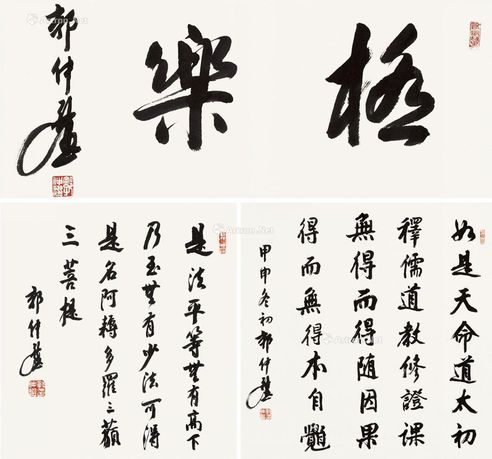 極樂
郭仲選
如是天命道太初
釋儒道教修證課
無得而得隨因果
得而無得本自覺
甲申冬初郭仲選
是法平等無有高下
乃至無有少法可得
是名阿耨多羅三藐
三菩提
郭仲選